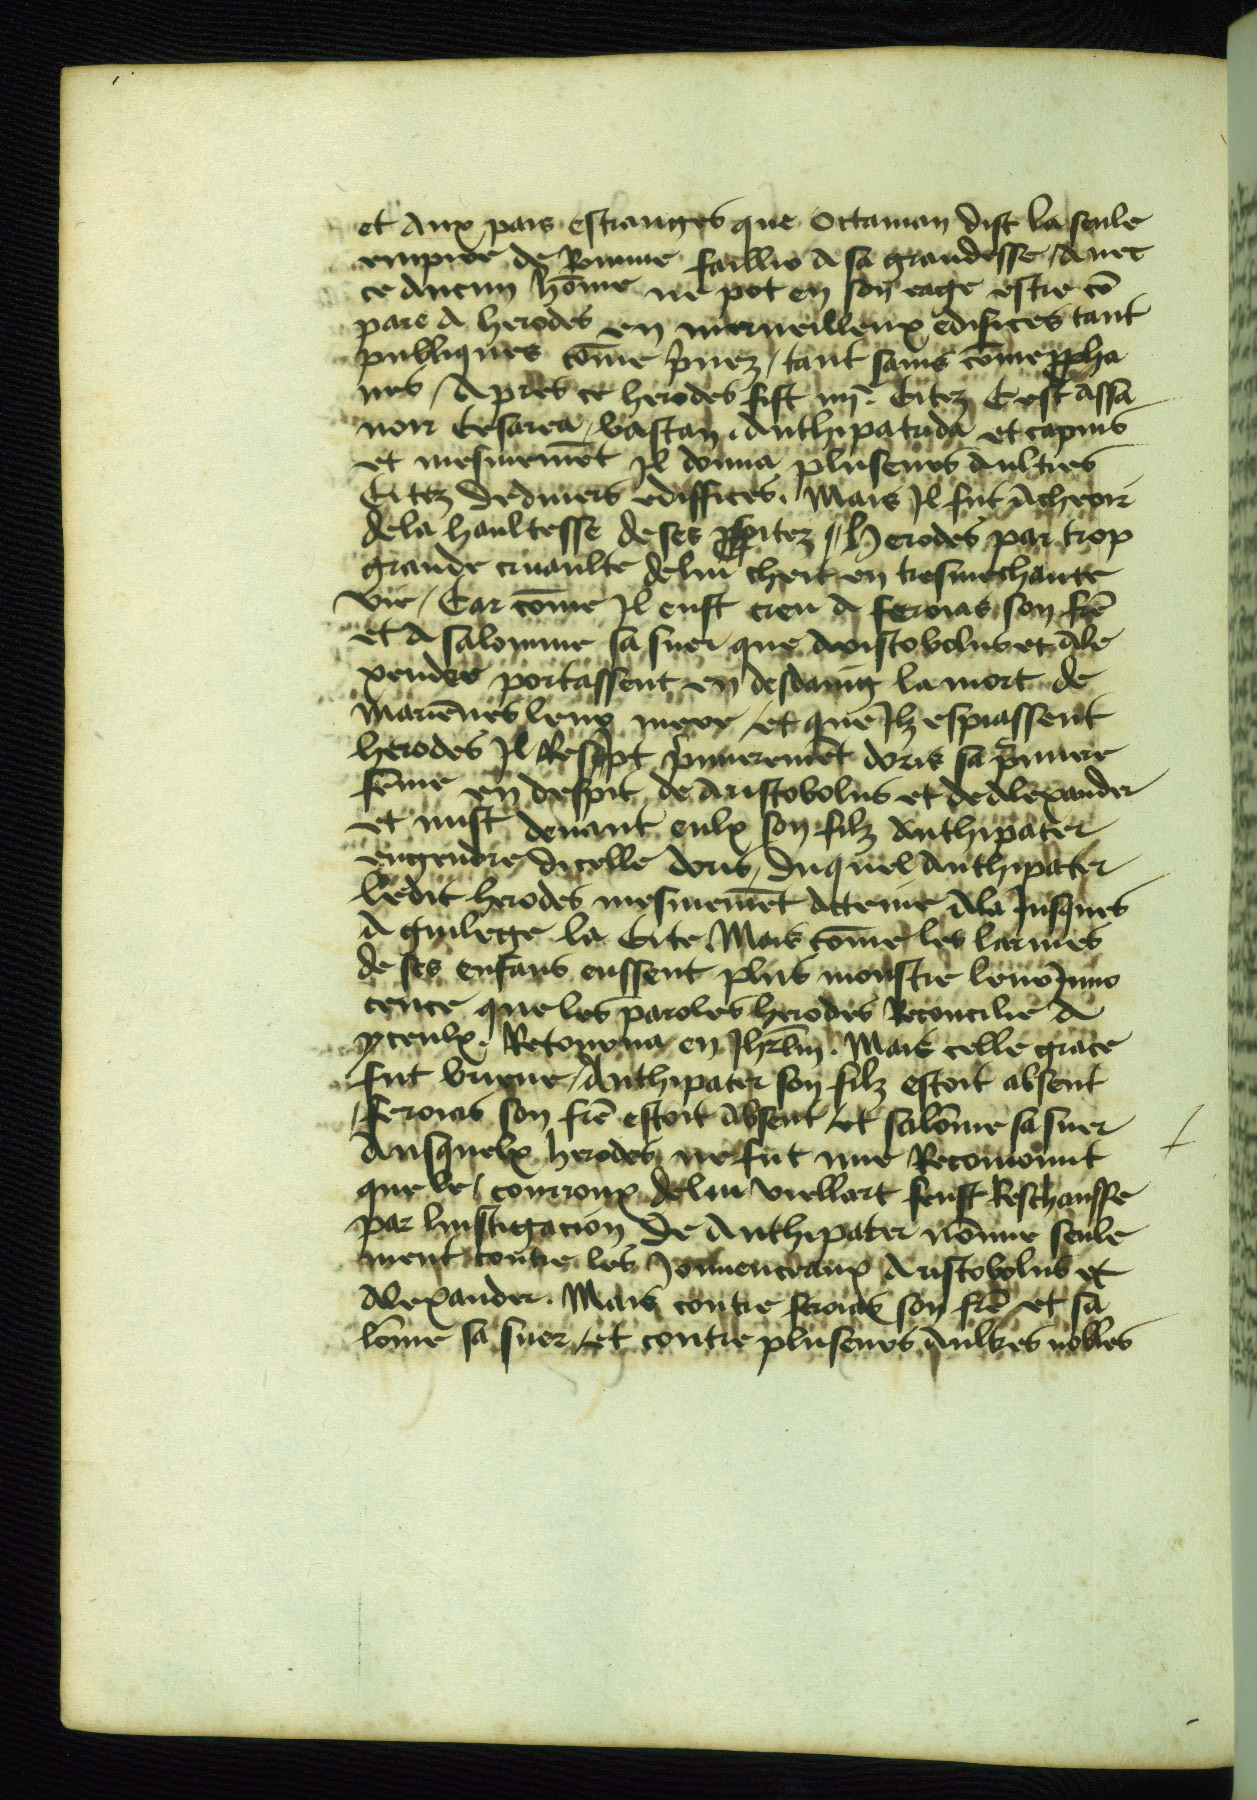 et aux pais estranges que Octauian dist la seule
empire de Romme faillir a sa grandesse / auec
ce aucun hōme ne pot en son eage estre cō
pare a herodes en merueilleux edifices tant
publiques cōme priuez / tant sains cōme propha
nes / Apres ce herodes fist iiij. Citez Cest assa
uoir Cesarea / bastan. Anthipatrida et capnis
et mesmemēt Jl donna pluseurs aultres
Citez de diuers ediffices. Mais Jl fut a cheoir
de la haultesse de ses prosperitez // Herodes par trop
grande cruaulte de lui cheit en tresmechante
vie / Car cōme Jl eust creu a feroias son frē
et a salomme sa suer que aristobolus et Ale
xendre portassent en desdaing la mort de
Mariēnes leur mere / et que Jlz espiassent
herodes Jl Resript p̄mieremēt doris sa p̄miere
fēme en despit de Aristobolus et de Alexander
et mist deuant eulx son filz Anthipater
engendre dicelle doris / duquel Anthipater
ledit herodes mesmemēt actenie Ala Jusques
a guilege la Cite Mais cōme les larmes
de ses enfans eussent plus monstre leur Jnno
cence que les paroles herodes Reconcilie a
yceulx. Retourna en Jhrlm. Mais celle grace
fut brieue / Anthipater son filz estoit absent
/ feroias son frē estoit absent / et salōme sa suer
Ausquelx herodes ne fut mie Reconount
que le / courroux de lui viellart feust Reschauffe
par linstigacion de Anthipater nōmie seule
ment contre les Jouuenceaux Aristobolus et
Alexander. Mais contre feroias son frē et sa
lōme sa suer / et contre pluseurs aultres nobles